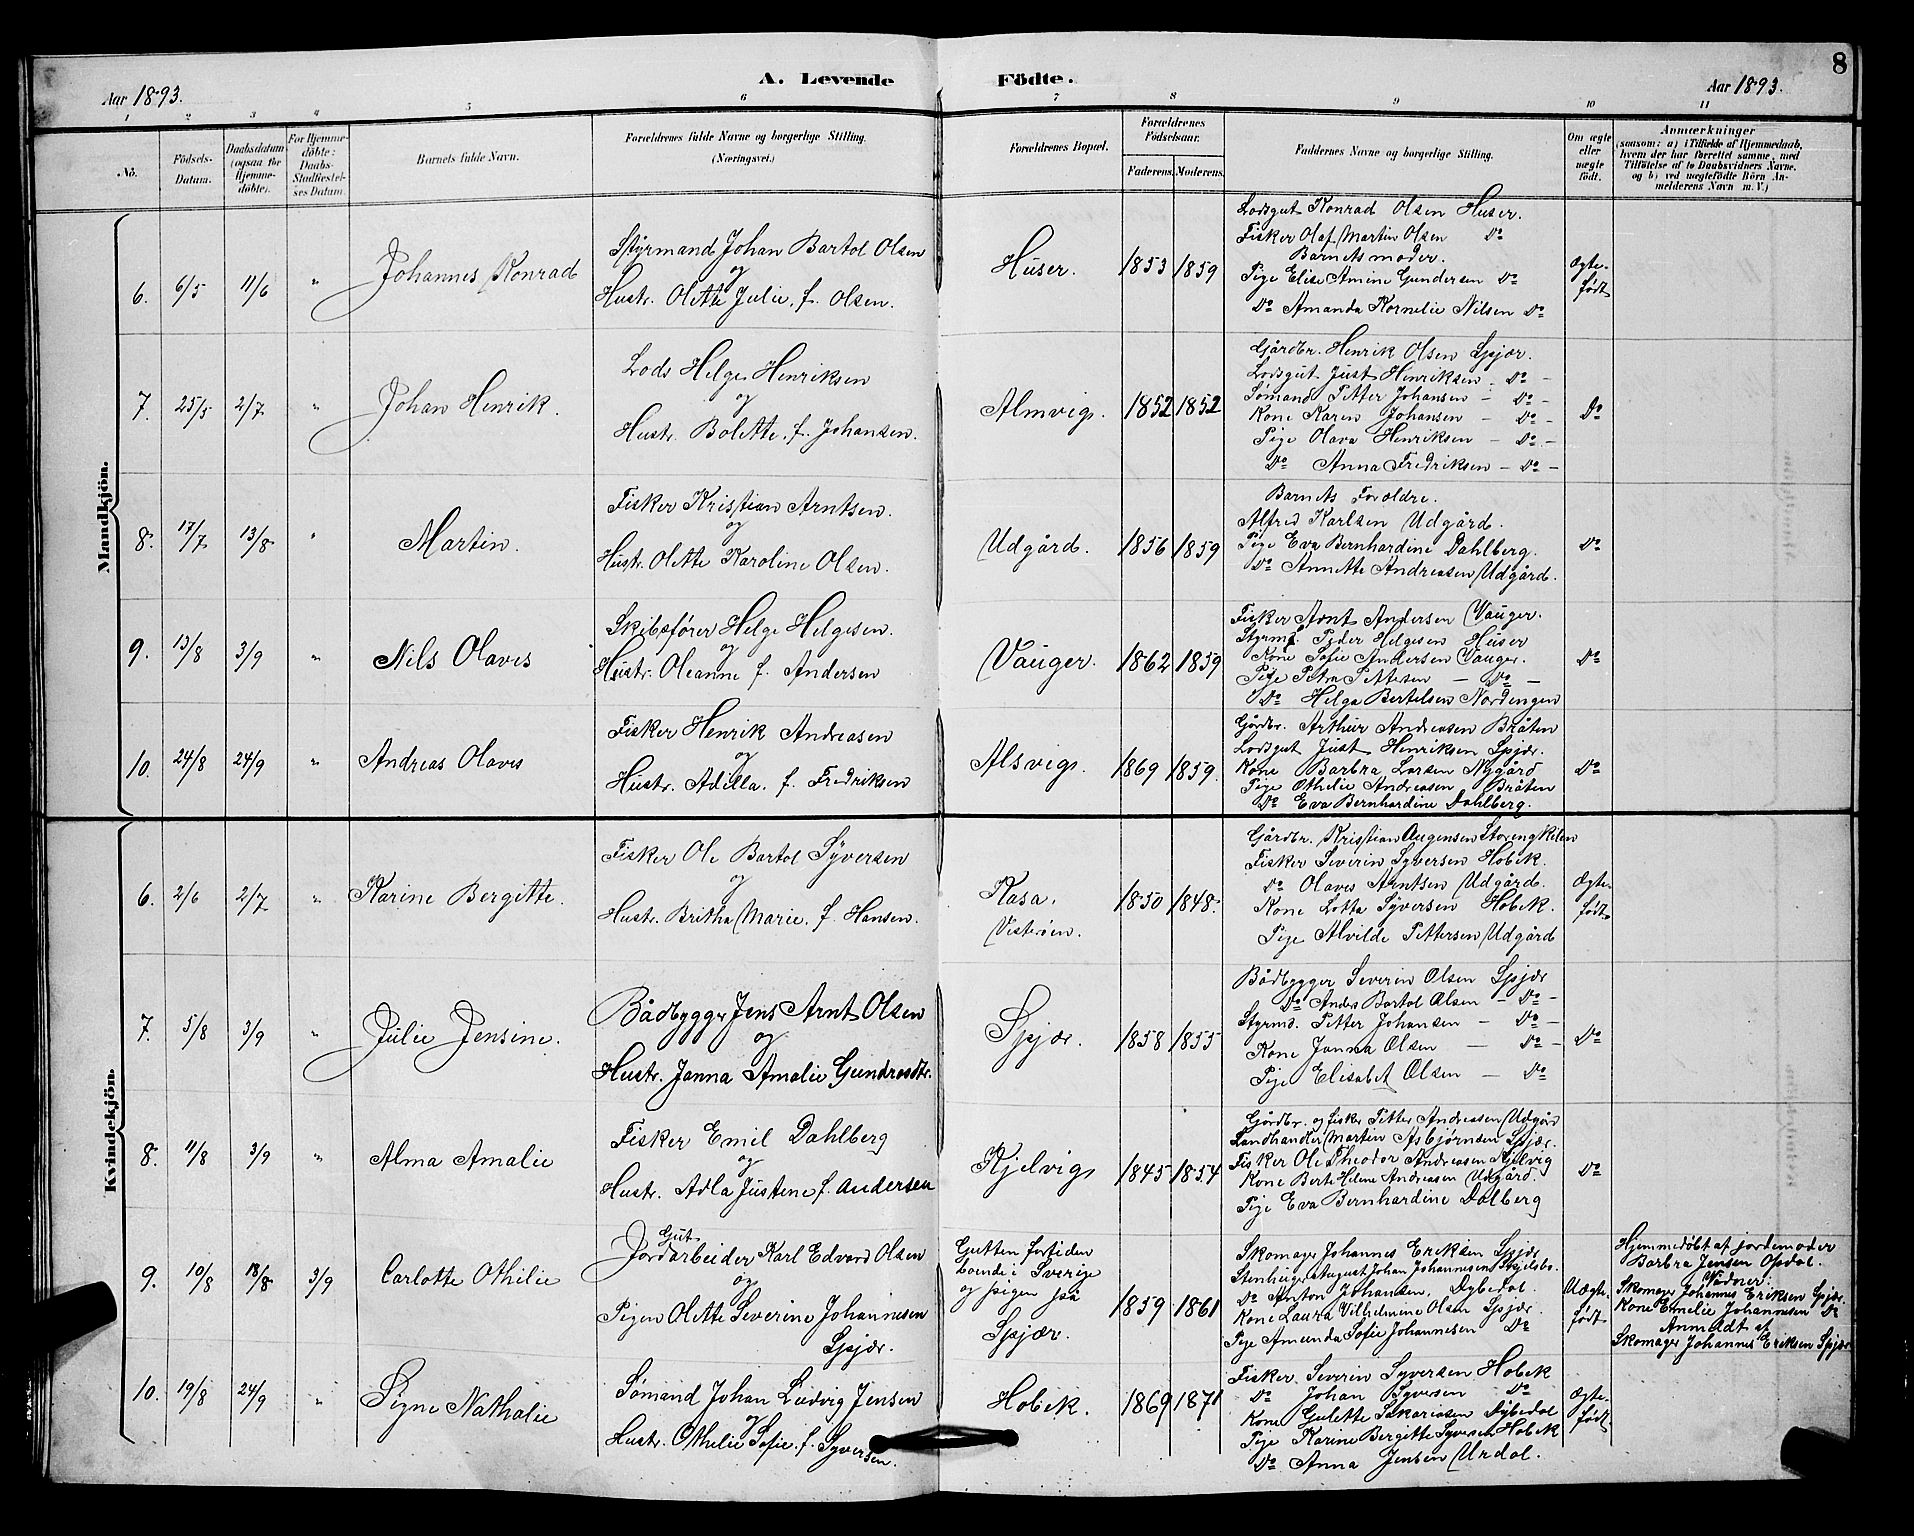 8
A. Levende Födte.
Aar 1893. Aar 1893.
1 2 3 4 5 6 7 8 9 10 11
No.
Födsels-Datum.
Daabsdatum (ogsaa for Hjemmedöbte).
For Hjemmedöbte: Daabs-Stadfæstelses Datum.
Barnets fulde Navn.
Forældrenes fulde Navne og borgerlige Stilling. (Næringsvei.)
Forældrenes Bopæl.
Forældrenes Födselsaar.
Faderens. Moderens.
Faddernes Navne og borgerlige Stilling.
Om ægte eller uægte födt.
Anmærkninger
(saasom: a) i Tilfælde af Hjemmedaab, hvem der har forrettet samme, med Tilföielse af to Daabsvidners Navne. og b) ved uægtefödte Börn Anmelderens Navn m. V.)
Mandkjön.
6. 6/5 11/6 " Johannes Konrad
Styrmand Johan Bartol Olsen
og
Hustr. Olette Julie, f. Olsen.
Huser. 1853 1859
Lodsgut Konrad Olsen Huser.
Fisker Olaf Martin Olsen Do
Barnets moder.
Pige Elise Amine Gundersen Do
Do Amanda Kornelie Nilsen Do
Ægte-
født
7. 25/5 2/7 " Johan Henrik.
Lods Helge Henriksen
og
Hustr. Bolette, f. Johansen.
Almvig. 1852 1852
Gårdbr. Henrik Olsen Spjær.
Lodsgut Just Henriksen - Do -
Sømand Petter Johansen - Do -
Kone Karen Johansen - Do -
Pige Olava Henriksen - Do -
Do Anna Fredriksen - Do -
Do
8. 17/7 13/8 " Martin.
Fisker Kristian Arntsen.
og
Hustr. Olette Karoline Olsen.
Udgård. 1856 1859
Barnets Forældre.
Alfred Karlsen Udgård.
Pige Eva Bernhardine Dahlberg.
Do Annette Andreasen Udgård.
Do
9. 13/8 3/9 " Nils Olaves
Skibsfører Helge Helgesen.
og
Hustr. Oleanne f. Andersen
Vauger. 1862 1859
Fisker Arnt Andersen Vauger.
Styrmd. Peder Helgesen Huser
Kone Sofie Andersen Vauger.
Pige Petra Pettersen - Do -
Do Helga Bertelsen Nordengen
Do
10. 24/8 24/9 " Andreas Olaves
Fisker Henrik Andreasen
og
Hustr. Adilla. f. Fredriksen
Alsvig. 1869 1859.
Gårdbr. Arthur Andreasen Bråten
Lodsgut Just Henriksen Spjær.
Kone Barbra Larsen Nygård
Pige Othilie Andreasen Bråten
Do Eva Bernhardine Dahlberg.
Do
Kvindekjön.
6. 2/6 2/7 " Karine Bergitte.
Fisker Ole Bartol Syversen
og
Hustr. Britha Marie. f. Hansen.
Kasa,
Vesterøen.
1850 1848.
Gårdbr. Kristian Augensen Storengkilen
Fisker Severin Syversen Hobek.
Do Olaves Arntsen Udgård.
Kone Lotta Syversen Hobek.
Pige Alvilde Pettersen Udgård
Ægte-
født
7. 5/8 3/9 " Julie Jensine.
Bådbygger Jens Arnt Olsen
og
Hustr. Janna Amalie Gundresdtr.
Spjær. 1858 1855
Bådbygger Severin Olsen Spjær
Do Anders Bartol Olsen - Do -
Styrmd. Petter Johansen - Do -
Kone Janna Olsen - Do -
Pige Elisabet Olsen - Do
Do
8. 11/8 3/9 " Alma Amalie
Fisker Emil Dahlberg
og
Hustr. Adla Justene f. Andersen
Kjelvig 1845 1854
Gårdbr. og fisker Petter Andreasen Udgård
Landhandler Martin Asbjørnsen Spjær.
Fisker Ole Theodor Andreasen Kjelvig
Kone Berte Helene Andreasen Udgård.
Pige Eva Bernhardine Dalberg
Do
9. 10/8 18/8 3/9 Carlotte Othilie
Gut
Jordarbeider Karl Edvard Olsen
og
Pigen Olette Severine Johannesen
Spjær.
Gutten fortiden
boende i Sverige
og pigen på
Spjær.
1859 1861
Skomager Johannes Eriksen Spjær
Stenhugger August Johan Johannesen Skjelsbo.
Do Anton Johansen, Dybedal.
Kone Laura Vilhelmine Olsen Spjær.
Pige Amunda Sofie Johannesen Do
Uægte-
født
Hjemmedøbt af jordemoder
Barbra Jensen Opdal.
Vidner:
Skomager Johannes Eriksen Spjær
Kone Emelie Johannesen Do
Anmeldt af
Skomager Johannes Eriksen Spjær
10. 19/8 24/9 " Signe Nathalie
Sømand Johan Ludvig Jensen
og
Hustr. Othelie Sofie. f. Syversen.
Hobek. 1869 1871
Fisker. Severin Syversen Hobek
Do Johan Syversen Do
Kone Gulette Sakariasen Dybedal
Pige Karine Bergitte Syversen Hobek
Do Anna Jensen Urdal.
Ægte-
født